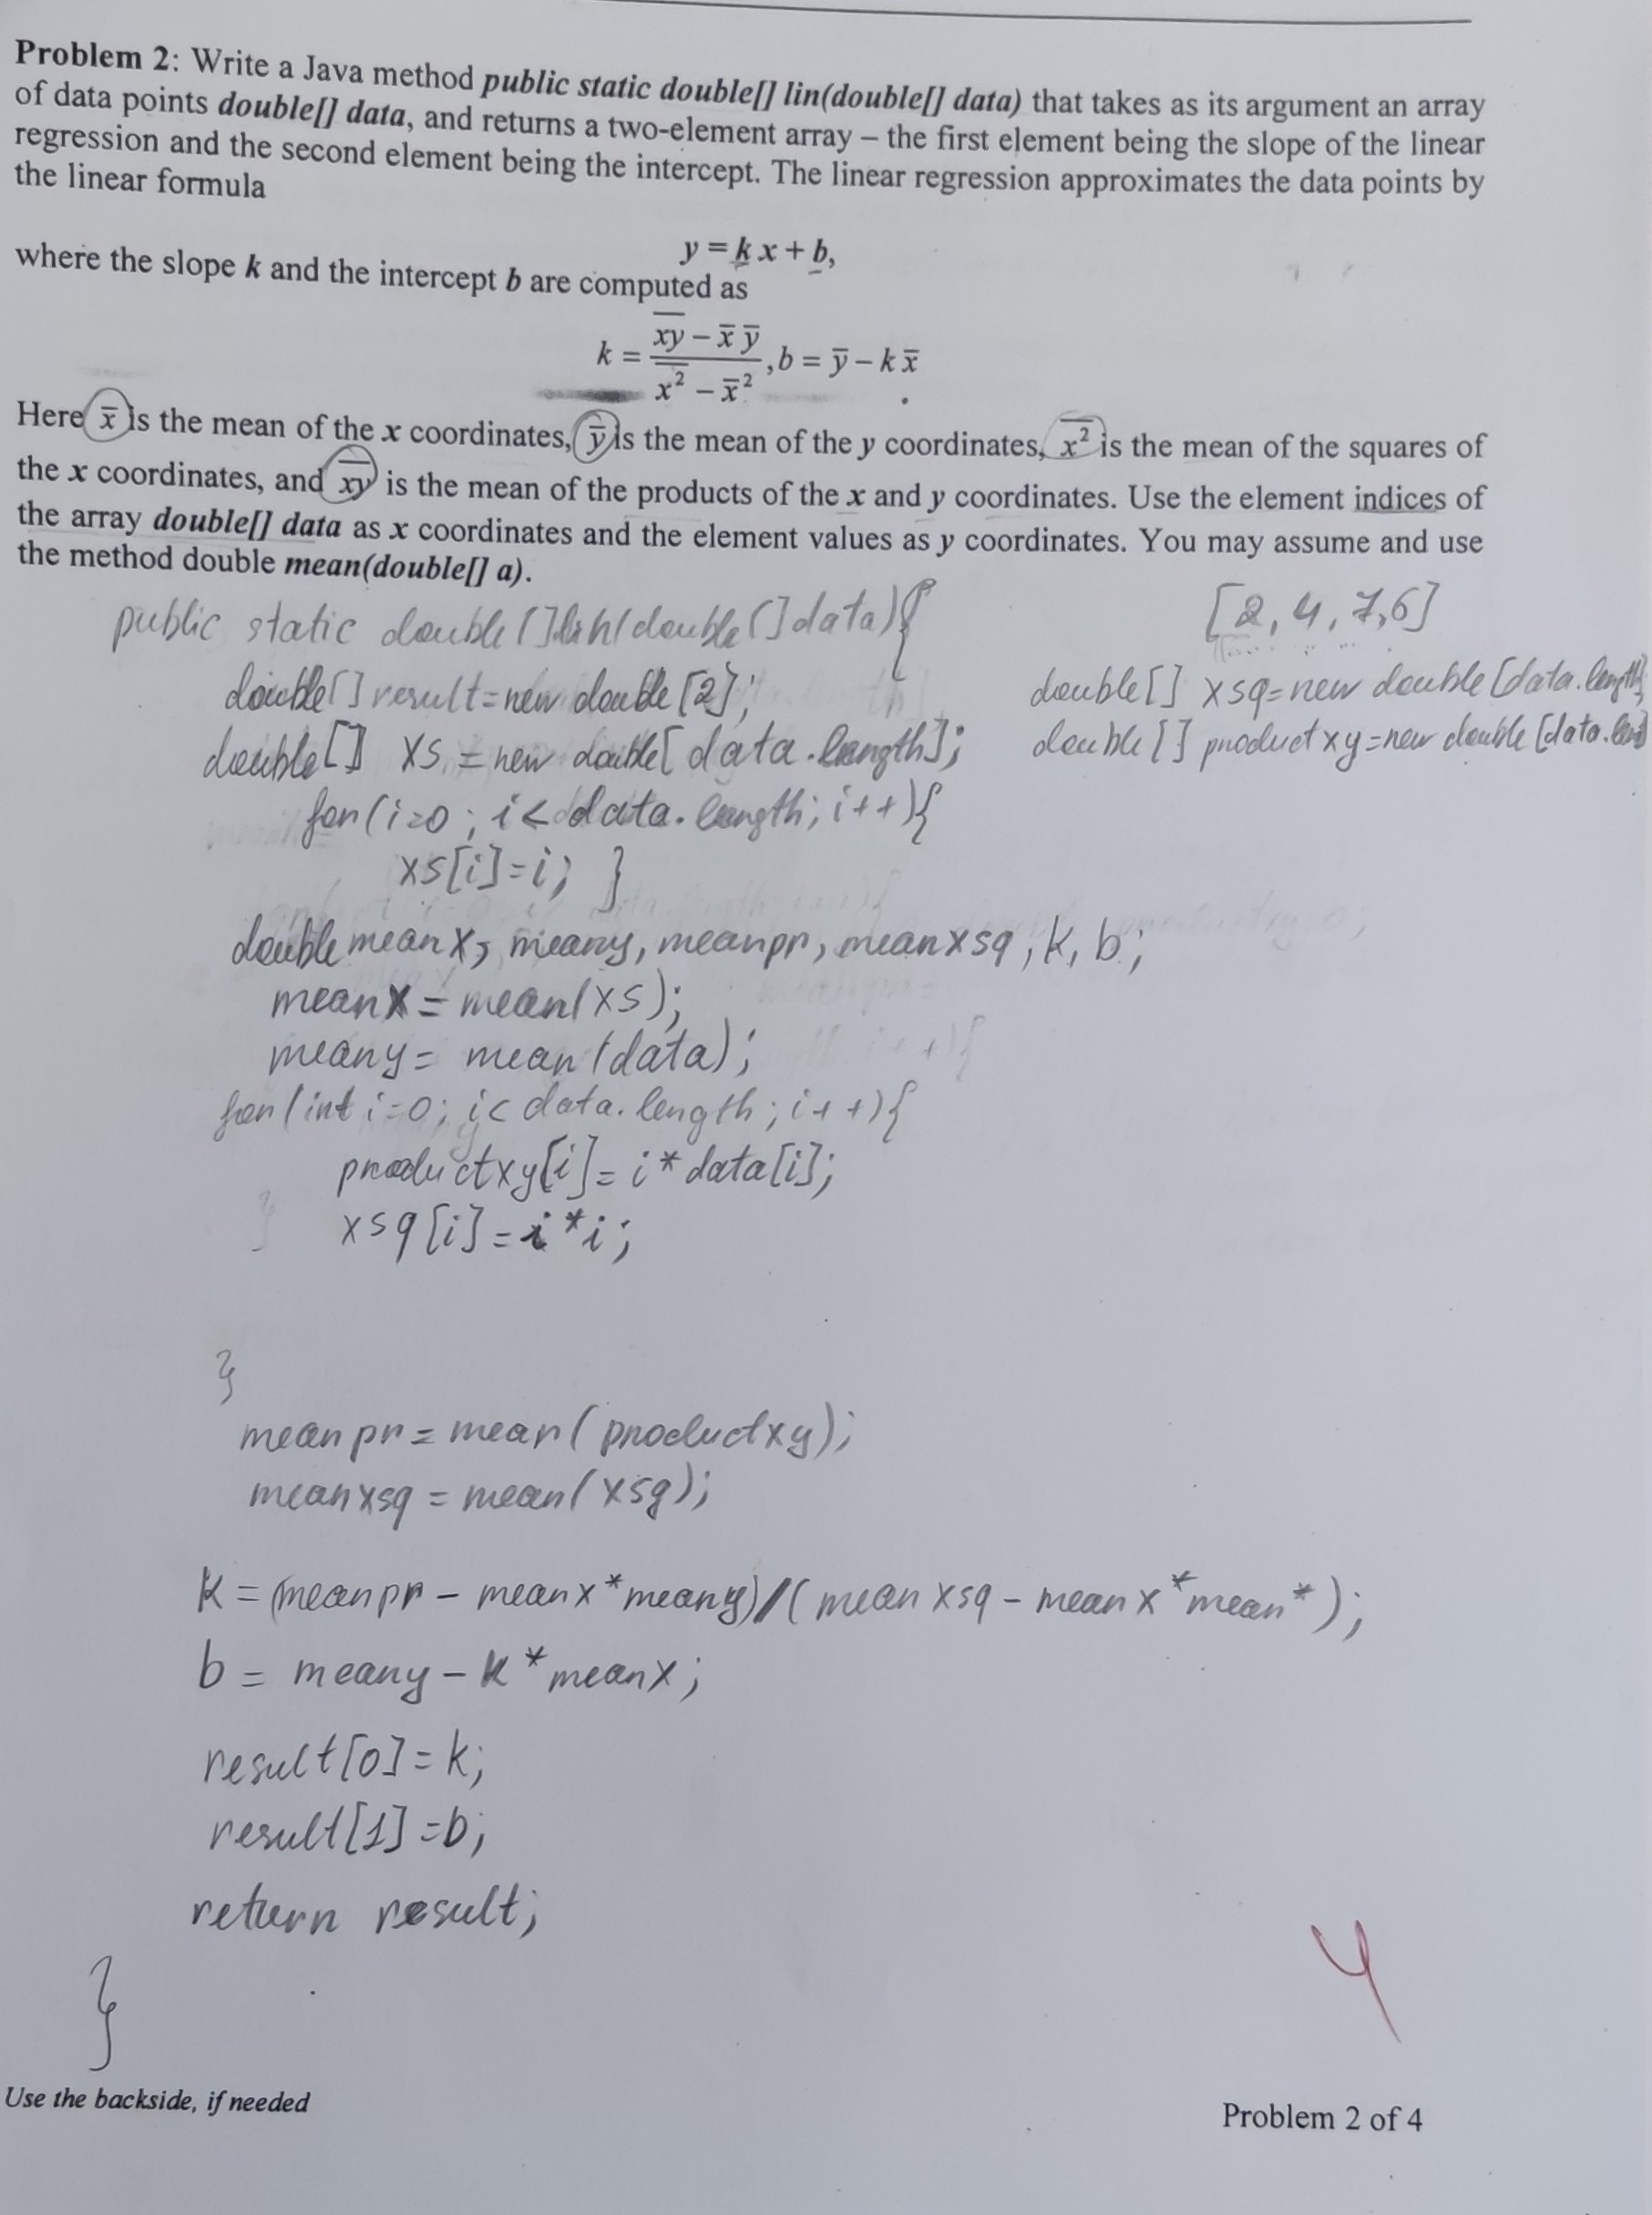 Problem 2: Write a Java method public static double[] lin(double[] data) that takes as its argument an array
of data points double[] data, and returns a two-element array – the first element being the slope of the linear
regression and the second element being the intercept. The linear regression approximates the data points by
the linear formula
y = k x + b,
where the slope k and the intercept b are computed as
k = (x̅y̅ – x̄ ȳ) / (x̅²̅ – x̄²), b = ȳ – k x̄
Here x̄ is the mean of the x coordinates, ȳ is the mean of the y coordinates, x̅²̅ is the mean of the squares of
the x coordinates, and x̅y̅ is the mean of the products of the x and y coordinates. Use the element indices of
the array double[] data as x coordinates and the element values as y coordinates. You may assume and use
the method double mean(double[] a).
public static double[] lin(double[] data){
[2, 4, 7, 6]
double[] result=new double[2];
double[] xsq=new double[data.length]
double[] xs = new double[data.length];
double[] productxy=new double[data.len
for(i=0; i< data.length; i++){
xs[i]=i; }
double meanx, meany, meanpr, meanxsq, k, b;
meanx = mean(xs);
meany= mean(data);
for(int i=0; i< data.length; i++){
productxy[i]= i*data[i];
xsq[i]=i*i;
}
meanpr= mean(productxy);
meanxsq = mean(xsq);
k = (meanpr – meanx*meany)/(meanxsq – meanx*mean*);
b = meany – k*meanx;
result[0]=k;
result[1]=b;
return result;
}
4
Use the backside, if needed
Problem 2 of 4